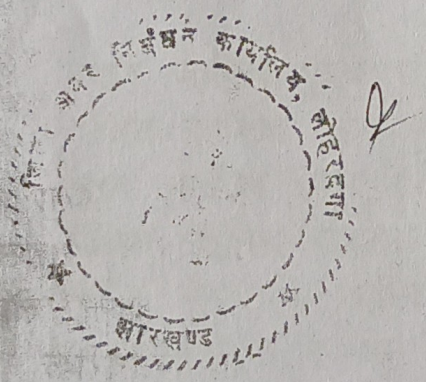 जिला अवर निबंधन कार्यालय, लोहरदगा
झारखण्ड